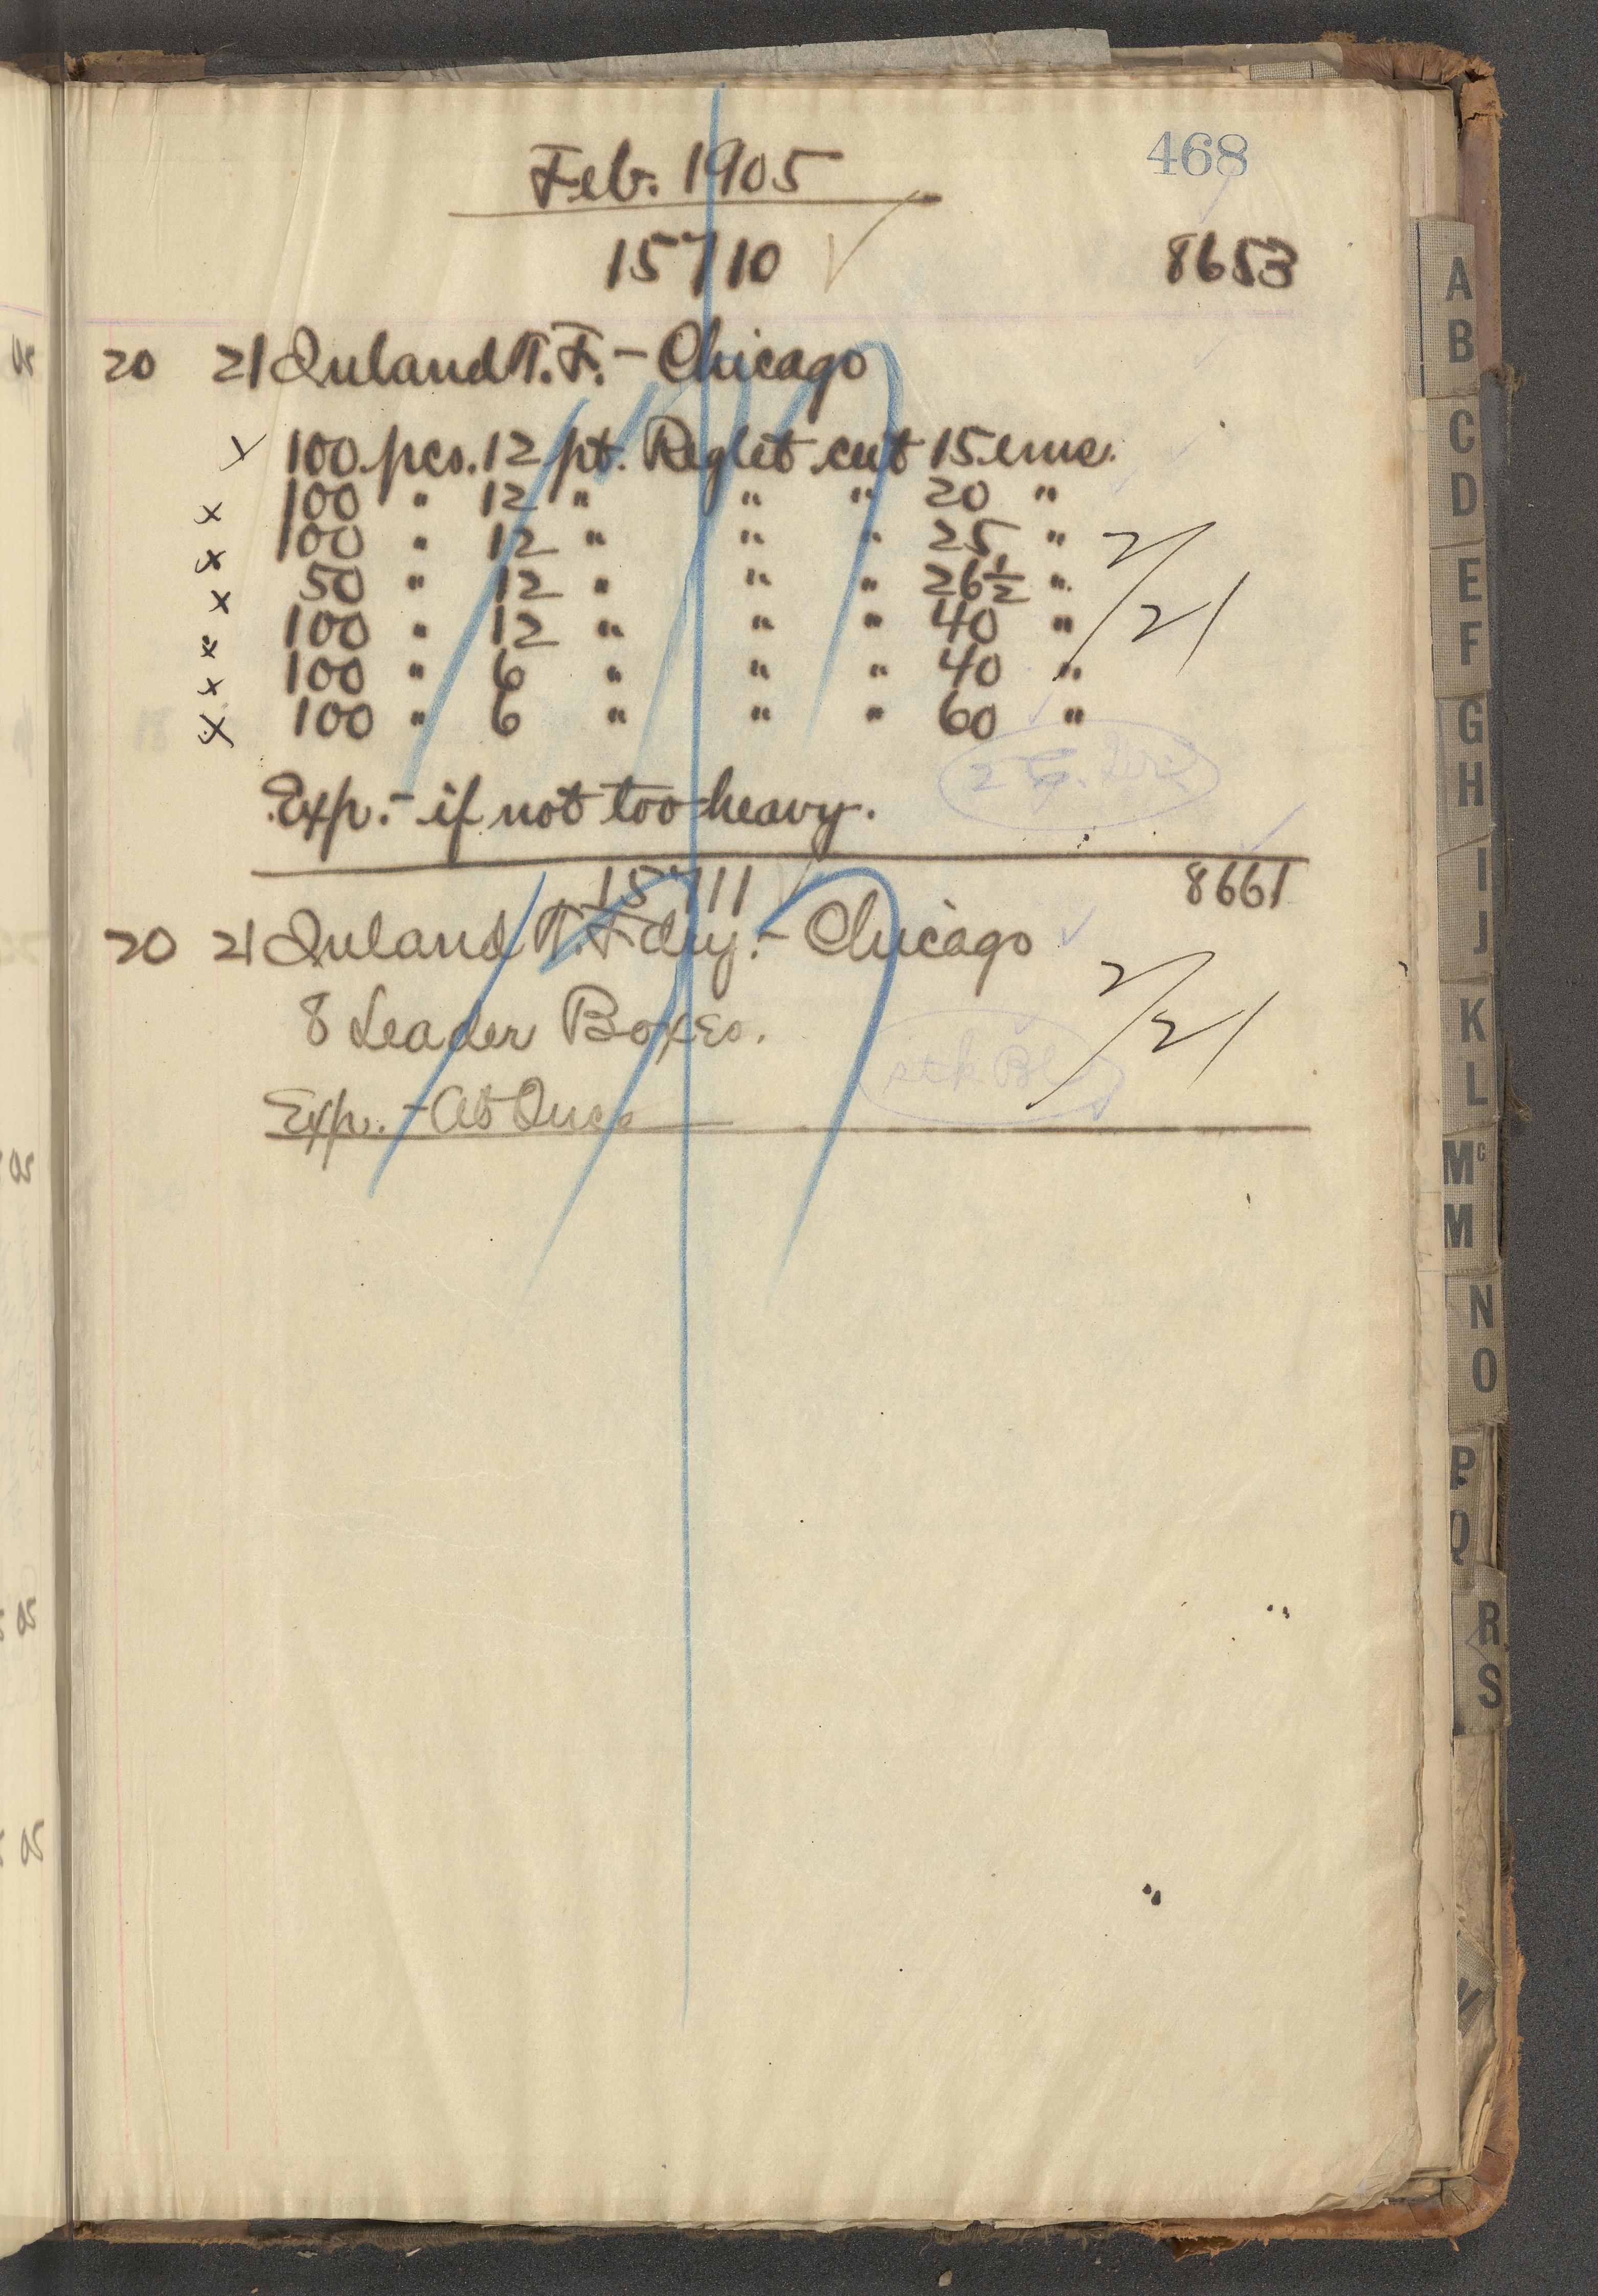 468
Feb. 1905
15710 8653
20 21 Inland T. F. - Chicago
x 100 pcs. 12 pt. Reglet cut 15 ems.
x 100 " 12 " " " 20 "
x 100 " 12 " " " 25 "
x 50 " 12 " " " 26 1/2 "
x 100 " 12 " " " 40 "
x 100 " 6 " " " 40 "
x 100 " 6 " " " 60 "
2/21
Exp. - if not too heavy.
15711 8661
20 21 Inland T. Fdry. - Chicago
8 Leader Boxes.
2/21
stk
Exp. - At Once
A
B
C
D
E
F
G
H
I
J
K
L
Mc
M
N
O
P
Q
R
S